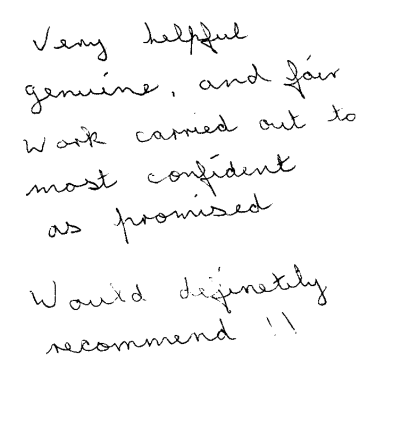 Very helpful
genuine, and fair
Work carried out to
most confident
as promised
Would definetely
recommend !!